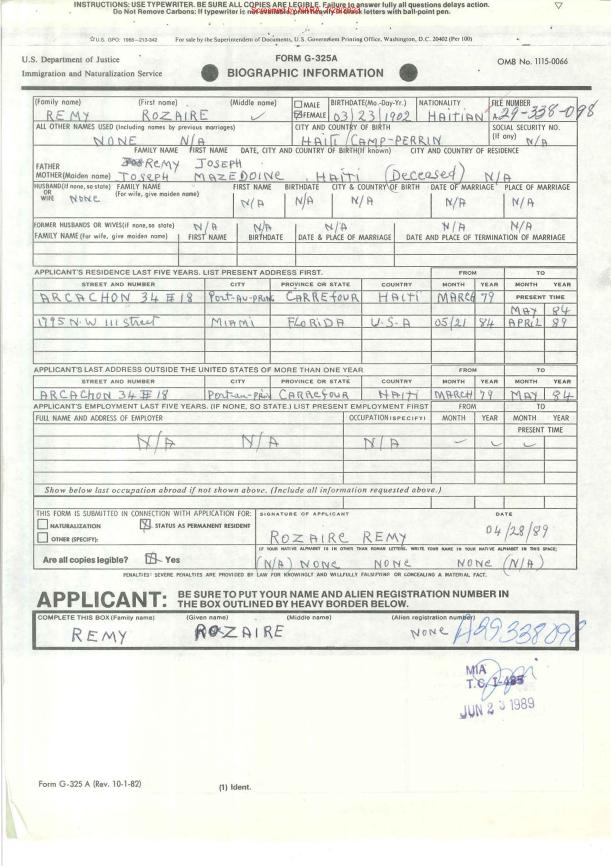 INSTRUCTIONS: USE TYPEWRITER. BE SURE ALL COPIES ARE LEGIBLE. Failure to answer fully all questions delays action.
Do Not Remove Carbons: If typewriter is not available, print heavily in block letters with ball-point pen.
☆U.S. GPO: 1985—213-342 For sale by the Superintendent of Documents, U.S. Government Printing Office, Washington, D.C. 20402 (Per 100)
U.S. Department of Justice FORM G-325A OMB No. 1115-0066
Immigration and Naturalization Service BIOGRAPHIC INFORMATION
(Family name) (First name) (Middle name) MALE BIRTHDATE(Mo.-Day-Yr.) NATIONALITY FILE NUMBER
REMY ROZAIRE FEMALE 03/23/1902 HAITIAN A29-338-098
ALL OTHER NAMES USED (Including names by previous marriages) CITY AND COUNTRY OF BIRTH SOCIAL SECURITY NO. (If any)
NONE N/A HAITI/CAMP-PERRIN N/A
FAMILY NAME FIRST NAME DATE, CITY AND COUNTRY OF BIRTH(If known) CITY AND COUNTRY OF RESIDENCE
FATHER REMY JOSEPH
MOTHER(Maiden name) JOSEPH MAZEDOINE HAITI (Deceased) N/A
HUSBAND(If none, so state) OR WIFE FAMILY NAME (For wife, give maiden name) FIRST NAME BIRTHDATE CITY & COUNTRY OF BIRTH DATE OF MARRIAGE PLACE OF MARRIAGE
NONE N/A N/A N/A N/A N/A
FORMER HUSBANDS OR WIVES(if none, so state) N/A N/A N/A N/A N/A
FAMILY NAME (For wife, give maiden name) FIRST NAME BIRTHDATE DATE & PLACE OF MARRIAGE DATE AND PLACE OF TERMINATION OF MARRIAGE
APPLICANT'S RESIDENCE LAST FIVE YEARS. LIST PRESENT ADDRESS FIRST. FROM TO
STREET AND NUMBER CITY PROVINCE OR STATE COUNTRY MONTH YEAR MONTH YEAR
ARCACHON 34 #18 Port-Au-Prin CARREfour HAITI MARCH 79 PRESENT TIME
MAY 84
1795 N.W 111 street MIAMI FLORIDA U.S.A 05/21 84 APRIL 89
APPLICANT'S LAST ADDRESS OUTSIDE THE UNITED STATES OF MORE THAN ONE YEAR FROM TO
STREET AND NUMBER CITY PROVINCE OR STATE COUNTRY MONTH YEAR MONTH YEAR
ARCACHON 34 #18 Port-au-Prin CARREfour HAITI MARCH 79 MAY 84
APPLICANT'S EMPLOYMENT LAST FIVE YEARS. (IF NONE, SO STATE.) LIST PRESENT EMPLOYMENT FIRST FROM TO
FULL NAME AND ADDRESS OF EMPLOYER OCCUPATION(SPECIFY) MONTH YEAR MONTH YEAR
PRESENT TIME
N/A N/A N/A
Show below last occupation abroad if not shown above. (Include all information requested above.)
THIS FORM IS SUBMITTED IN CONNECTION WITH APPLICATION FOR: SIGNATURE OF APPLICANT DATE
NATURALIZATION STATUS AS PERMANENT RESIDENT
OTHER (SPECIFY): ROZAIRE REMY 04/28/89
IF YOUR NATIVE ALPHABET IS IN OTHER THAN ROMAN LETTERS, WRITE YOUR NAME IN YOUR NATIVE ALPHABET IN THIS SPACE:
Are all copies legible? Yes (N/A) NONE NONE NONE (N/A)
PENALTIES: SEVERE PENALTIES ARE PROVIDED BY LAW FOR KNOWINGLY AND WILLFULLY FALSIFYING OR CONCEALING A MATERIAL FACT.
APPLICANT: BE SURE TO PUT YOUR NAME AND ALIEN REGISTRATION NUMBER IN
THE BOX OUTLINED BY HEAVY BORDER BELOW.
COMPLETE THIS BOX (Family name) (Given name) (Middle name) (Alien registration number)
REMY ROZAIRE NONE A29338098
MIA
T.C. I-485
JUN 23 1989
Form G-325 A (Rev. 10-1-82) (1) Ident.